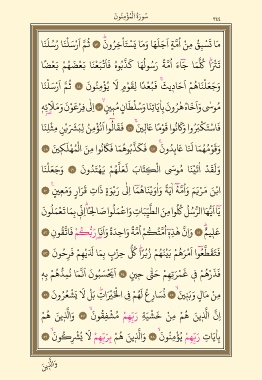 سُورَةُ الْمُؤْمِنُونَ
٣٤٤
مَا تَسْبِقُ مِنْ اُمَّةٍ اَجَلَهَا وَمَا يَسْتَأْخِرُونَ ۞ ثُمَّ اَرْسَلْنَا رُسُلَنَا
تَتْرٰا كُلَّمَا جَٓاءَ اُمَّةً رَسُولُهَا كَذَّبُوهُ فَاَتْبَعْنَا بَعْضَهُمْ بَعْضًا
وَجَعَلْنَاهُمْ اَحَادِيثَ فَبُعْدًا لِقَوْمٍ لَا يُؤْمِنُونَ ۞ ثُمَّ اَرْسَلْنَا
مُوسٰى وَاَخَاهُ هٰرُونَ بِاٰيَاتِنَا وَسُلْطَانٍ مُبِينٍ ۞ اِلٰى فِرْعَوْنَ وَمَلَا۬ئِهِ
فَاسْتَكْبَرُوا وَكَانُوا قَوْمًا عَالِينَ ۞ فَقَالُٓوا اَنُؤْمِنُ لِبَشَرَيْنِ مِثْلِنَا
وَقَوْمُهُمَا لَنَا عَابِدُونَ ۞ فَكَذَّبُوهُمَا فَكَانُوا مِنَ الْمُهْلَكِينَ ۞
وَلَقَدْ اٰتَيْنَا مُوسَى الْكِتَابَ لَعَلَّهُمْ يَهْتَدُونَ ۞ وَجَعَلْنَا
ابْنَ مَرْيَمَ وَاُمَّهُٓ اٰيَةً وَاٰوَيْنَاهُمَٓا اِلٰى رَبْوَةٍ ذَاتِ قَرَارٍ وَمَعِينٍ ۞
يَٓا اَيُّهَا الرُّسُلُ كُلُوا مِنَ الطَّيِّبَاتِ وَاعْمَلُوا صَالِحًا اِنِّي بِمَا تَعْمَلُونَ
عَلِيمٌ ۞ وَاِنَّ هٰذِهِٓ اُمَّتُكُمْ اُمَّةً وَاحِدَةً وَاَنَا رَبُّكُمْ فَاتَّقُونِ ۞
فَتَقَطَّعُٓوا اَمْرَهُمْ بَيْنَهُمْ زُبُرًا كُلُّ حِزْبٍ بِمَا لَدَيْهِمْ فَرِحُونَ ۞
فَذَرْهُمْ فِي غَمْرَتِهِمْ حَتّٰى حِينٍ ۞ اَيَحْسَبُونَ اَنَّمَا نُمِدُّهُمْ بِهِ
مِنْ مَالٍ وَبَنِينَ ۞ نُسَارِعُ لَهُمْ فِي الْخَيْرَاتِ بَلْ لَا يَشْعُرُونَ ۞
اِنَّ الَّذِينَ هُمْ مِنْ خَشْيَةِ رَبِّهِمْ مُشْفِقُونَ ۞ وَالَّذِينَ هُمْ
بِاٰيَاتِ رَبِّهِمْ يُؤْمِنُونَ ۞ وَالَّذِينَ هُمْ بِرَبِّهِمْ لَا يُشْرِكُونَ ۞
وَالَّذِينَ